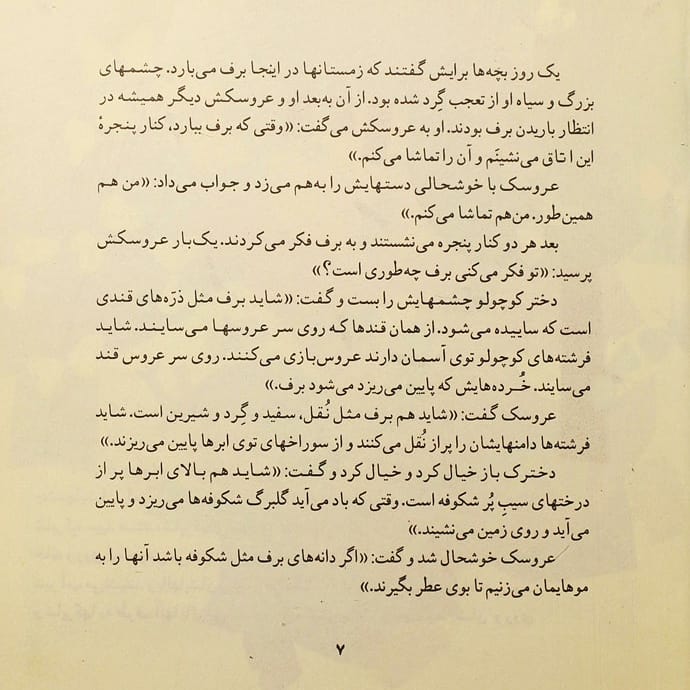 یک روز بچّه‌ها برایش گفتند که زمستانها در اینجا برف می‌بارد. چشمهای
بزرگ و سیاه او از تعجب گِرد شده بود. از آن به‌بعد او و عروسکش دیگر همیشه در
انتظار باریدن برف بودند. او به عروسکش می‌گفت: «وقتی که برف ببارد، کنار پنجرهٔ
این اتاق می‌نشینَم و آن را تماشا می‌کنم.»
عروسک با خوشحالی دستهایش را به‌هم می‌زد و جواب می‌داد: «من هم
همین‌طور. من‌هم تماشا می‌کنم.»
بعد هر دو کنار پنجره می‌نشستند و به برف فکر می‌کردند. یک‌بار عروسکش
پرسید: «تو فکر می‌کنی برف چه‌طوری است؟»
دختر کوچولو چشمهایش را بست و گفت: «شاید برف مثل ذرّه‌های قندی
است که ساییده می‌شود. از همان قندها که روی سر عروسها می‌سایند. شاید
فرشته‌های کوچولو توی آسمان دارند عروس‌بازی می‌کنند. روی سر عروس قند
می‌سایند. خُرده‌هایش که پایین می‌ریزد می‌شود برف.»
عروسک گفت: «شاید هم برف مثل نُقل، سفید و گِرد و شیرین است. شاید
فرشته‌ها دامنهایشان را پر از نُقل می‌کنند و از سوراخهای توی ابرها پایین می‌ریزند.»
دخترک باز خیال کرد و خیال کرد و گفت: «شاید هم بالای ابرها پر از
درختهای سیبِ پُر شکوفه است. وقتی که باد می‌آید گلبرگ شکوفه‌ها می‌ریزد و پایین
می‌آید و روی زمین می‌نشیند.»
عروسک خوشحال شد و گفت: «اگر دانه‌های برف مثل شکوفه باشد آنها را به
موهایمان می‌زنیم تا بوی عطر بگیرند.»
۷